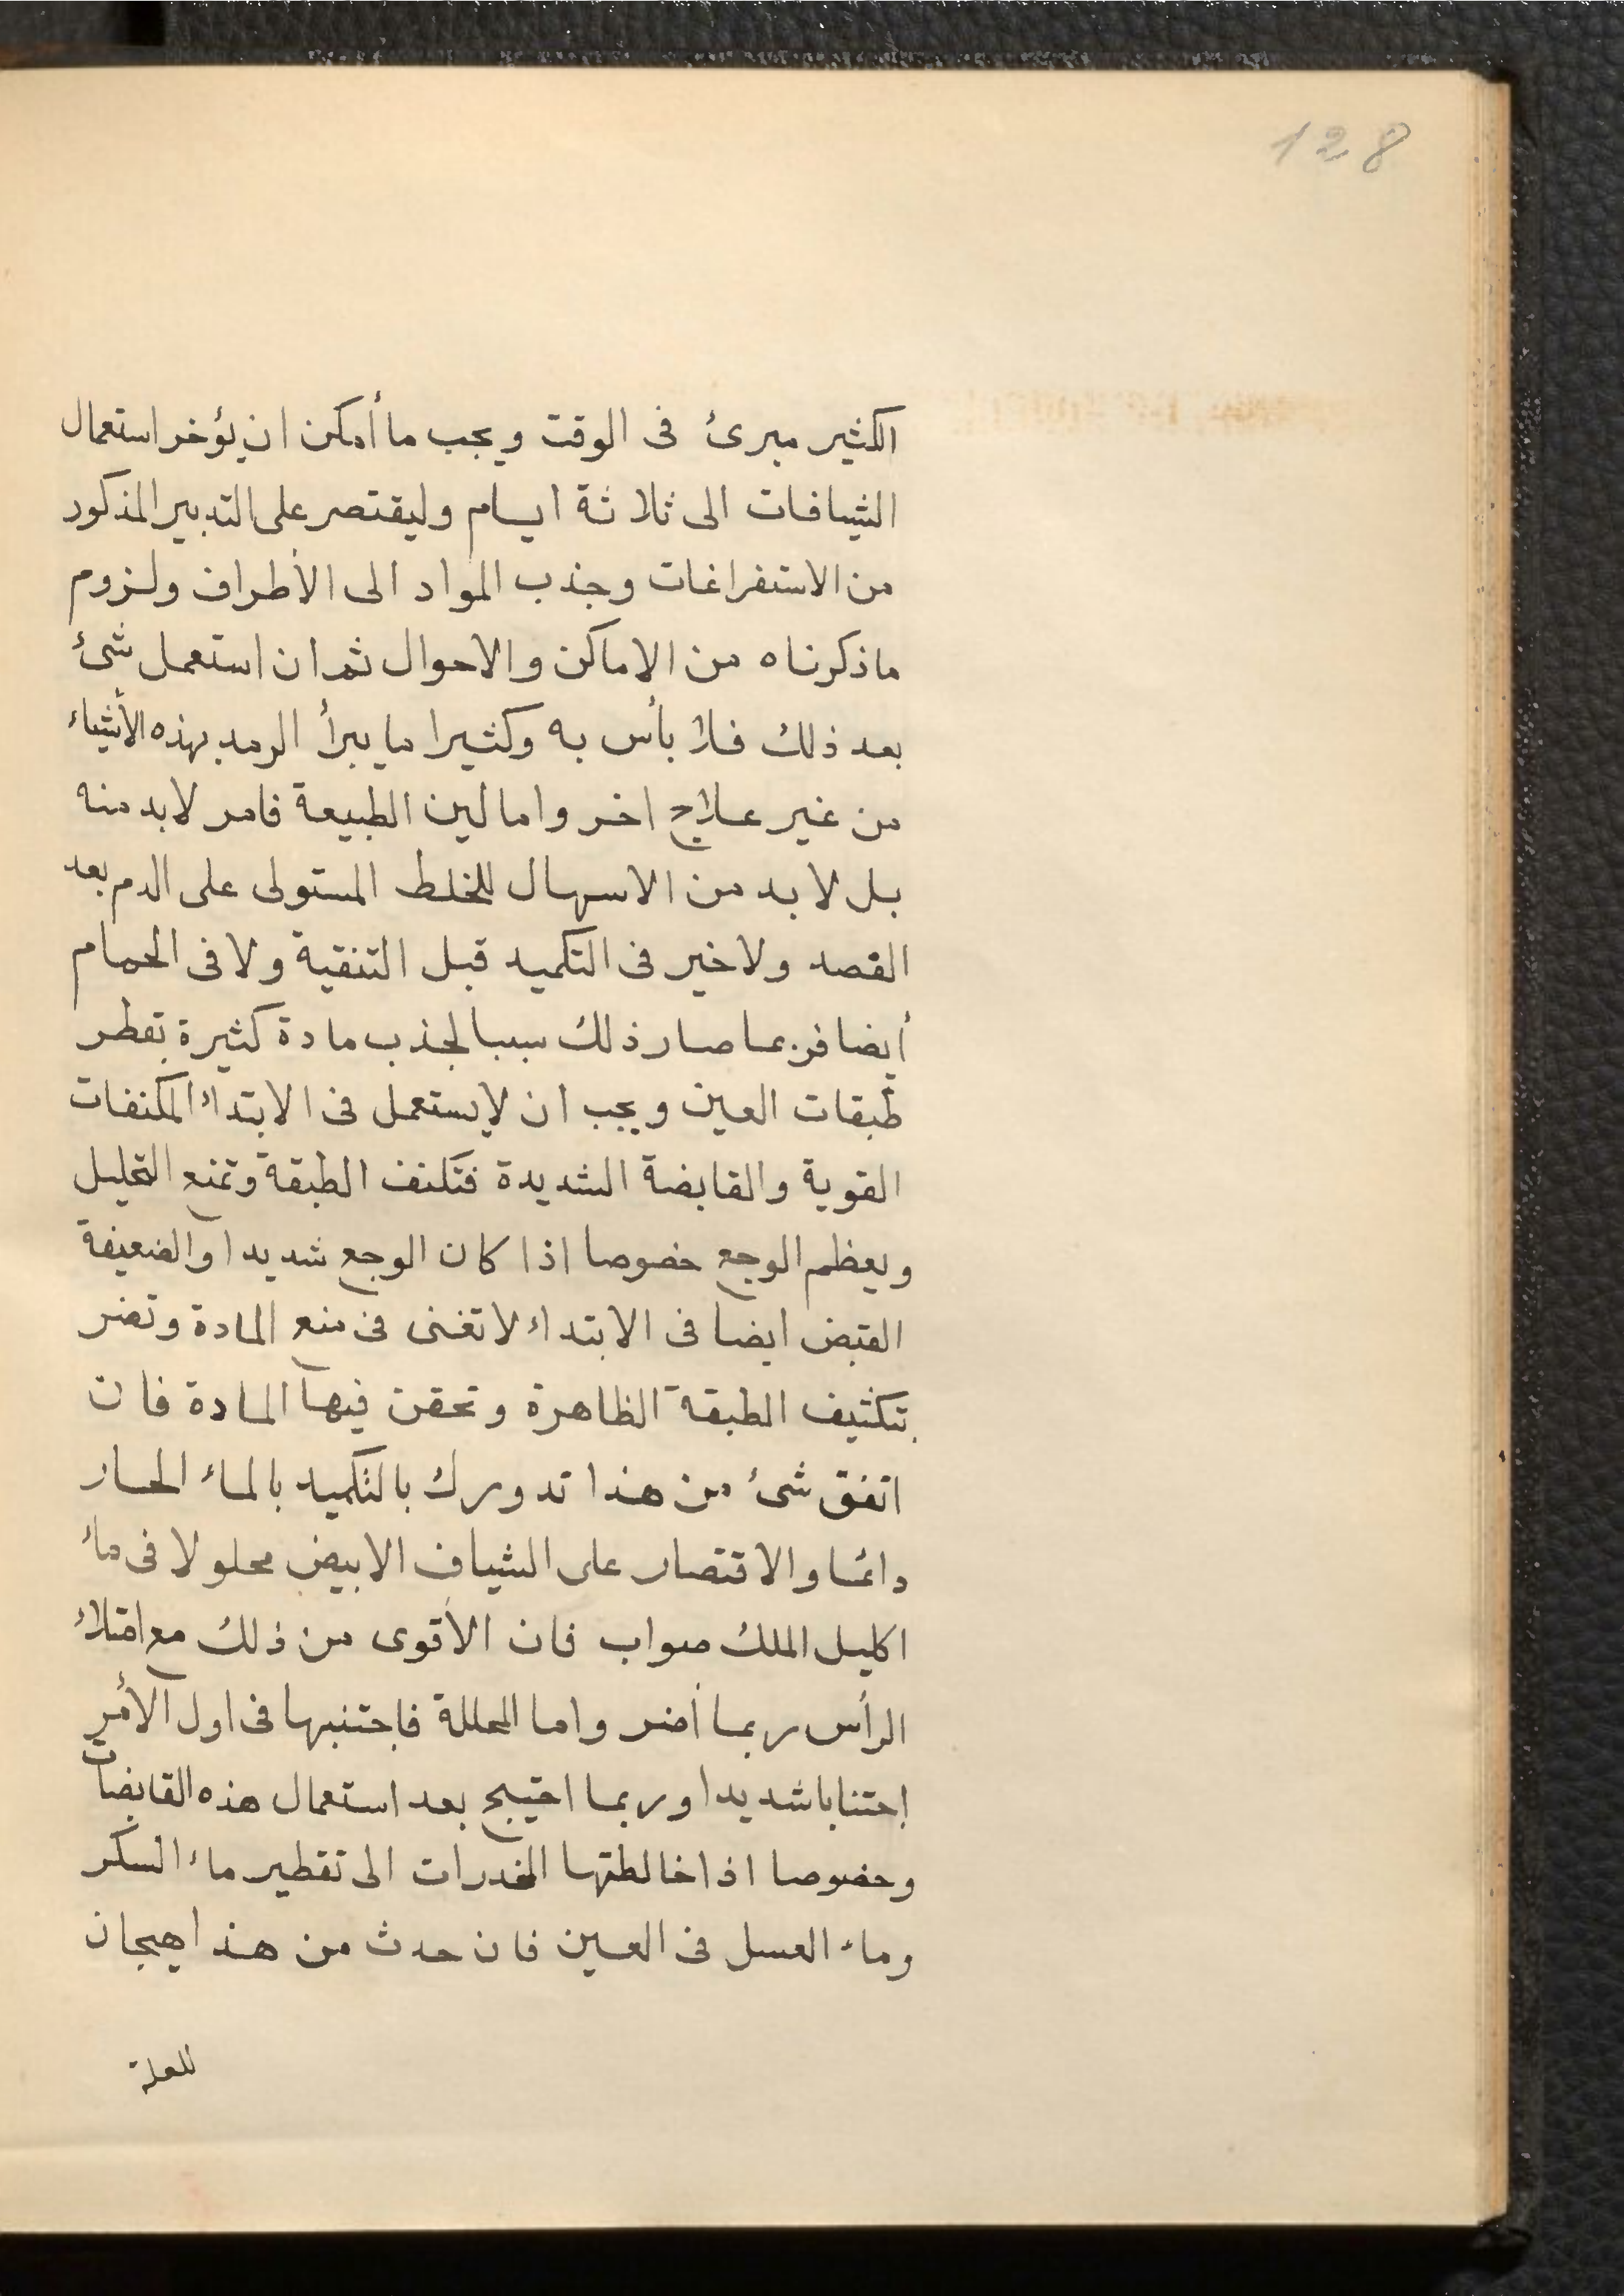 128
الكثير مبرئ فى الوقت ويجب ما أمكن ان يؤخر استعمال
الشيافات الى ثلاثة ايام وليقتصر على التدبير المذكور
من الاستفراغات وجذب المواد الى الأطراف ولزوم
ماذكرناه من الاماكن والاحوال ثم ان استعمل شئ
بعد ذلك فلا بأس به وكثيرا ما يبرأ الرمد بهذه الأشياء
من غير علاج اخر واما لين الطبيعة فامر لابد منه
بل لا بد من الاسهال للخلط المستولى على الدم بعد
القصد ولاخير فى التكميد قبل التنقية ولا فى الحمام
أيضا فربما صار ذلك سببا لجذب مادة كثيرة بقطر
طبقات العين ويجب ان لايستعمل فى الابتداء المكنفات
القوية والقابضة الشديدة فتكنف الطبقة وتمنع التحليل
ويعظم الوجع خصوصا اذا كان الوجع شديدا والضعيفة
القبض ايضا فى الابتداء لاتغنى فى منع المادة وتضر
بتكثيف الطبقة الظاهرة وتحقن فيها المادة فان
اتفق شئ من هذا تدورك بالتكميد بالماء الحار
دائما والاقتصار على الشياف الابيض محلولا فى ماء
اكليل الملك صواب فان الأقوى من ذلك مع امتلاء
الرأس ربما أضر واما المحللة فاجتنبها فى اول الأمر
اجتنابا شديدا وربما احتيج بعد استعمال هذه القابضات
وخصوصا اذا خالطتها المخدرات الى تقطير ماء السكر
وماء العسل فى العين فان حدث من هذا هيجان
للعلة